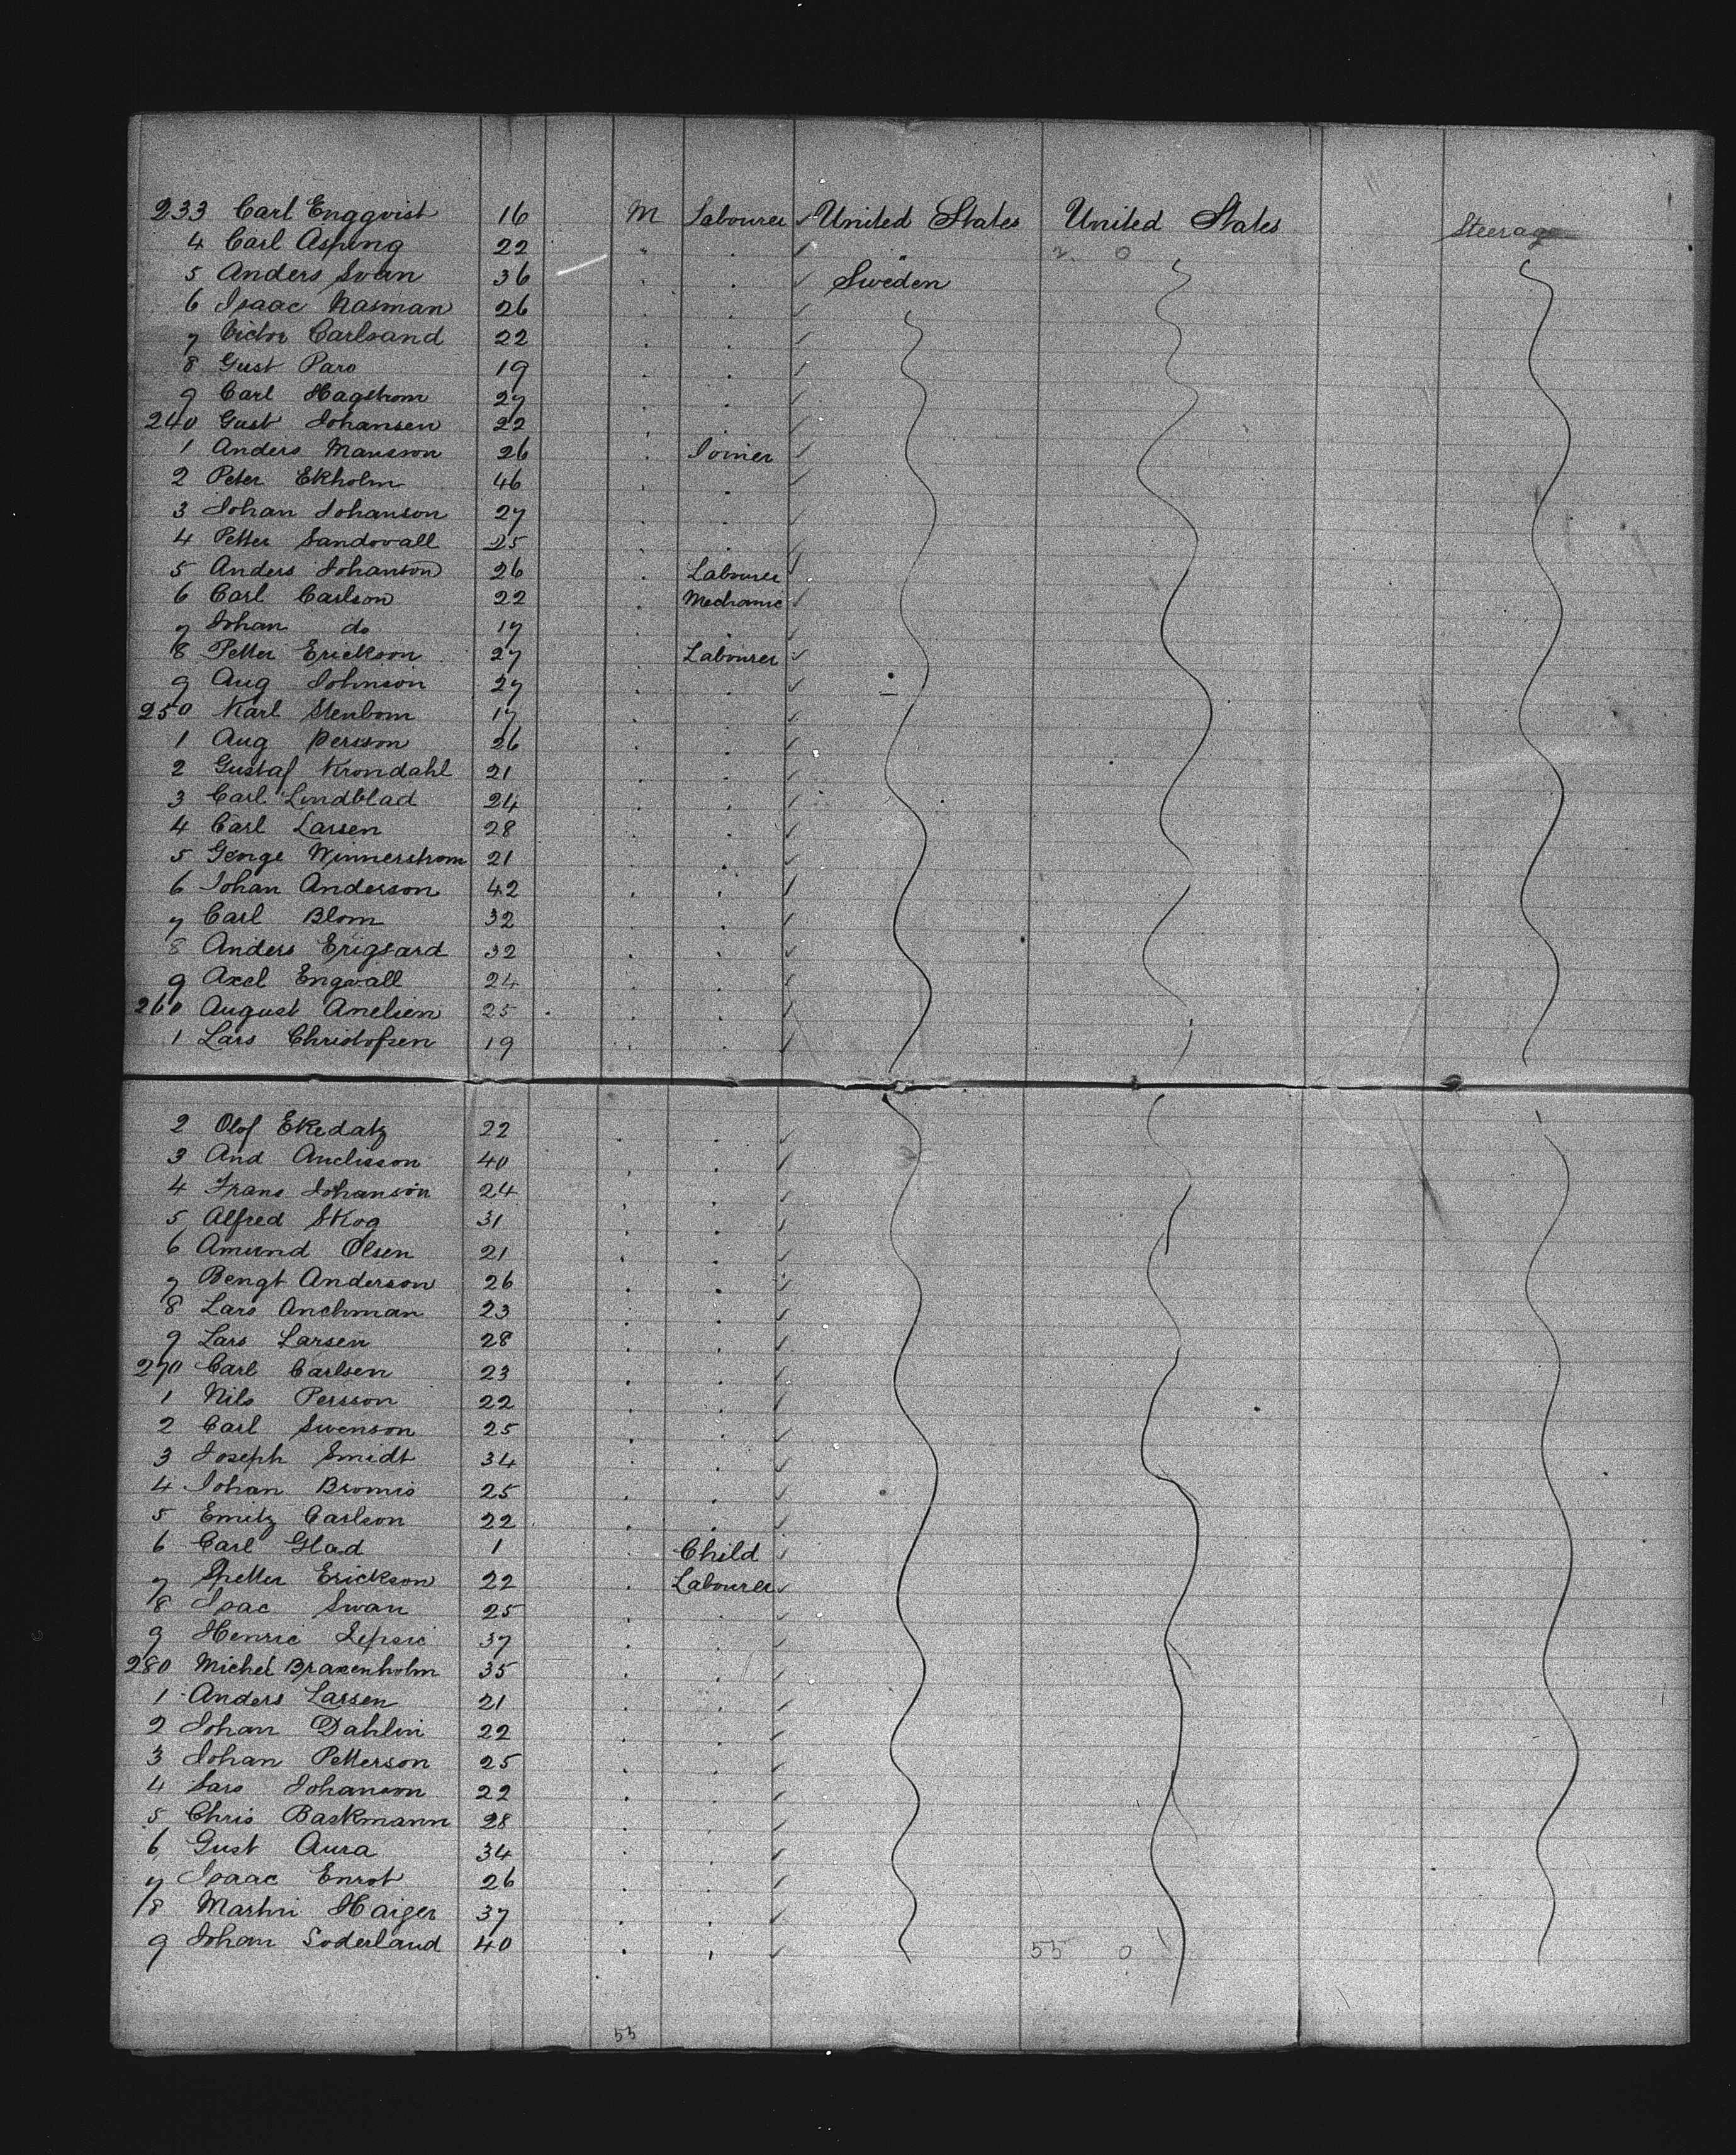 233 Carl Engqvist 16 M Labourer ✓ United States United States Steerage
4 Carl Asping 22 " ✓ " 2 0
5 Anders Svan 36 . . ✓ Sweden
6 Isaac Nasman 26 . . ✓
7 Victor Carlsand 22 . . ✓
8 Gust Paro 19 . . ✓
9 Carl Hagstrom 27 . . ✓
240 Gust Johansen 22 . . ✓
1 Anders Mansson 26 . Joiner ✓
2 Peter Ekholm 46 . . ✓
3 Johan Johanson 27 . . ✓
4 Petter Sandovall 25 . . ✓
5 Anders Johanson 26 . Labourer ✓
6 Carl Carlson 22 . Mechanic ✓
7 Johan do 17 . . ✓
8 Petter Erickson 27 . Labourer ✓
9 Aug Johnson 27 . . ✓
250 Karl Stenbom 17 . . ✓
1 Aug Persson 26 . . ✓
2 Gustaf Krondahl 21 . . ✓
3 Carl Lindblad 24 . . ✓
4 Carl Larsen 28 . . ✓
5 George Winnerstrom 21 . . ✓
6 Johan Anderson 42 . . ✓
7 Carl Blom 32 . . ✓
8 Anders Erigsard 32 . . ✓
9 Axel Engvall 24 . . ✓
260 August Amelien 25 . . ✓
1 Lars Christofsen 19 . . ✓
2 Olof Ekedatz 22 . . ✓
3 And 40 . . ✓
4 Frans Johanson 24 . . ✓
5 Alfred Skog 31 . . ✓
6 Amund Olsen 21 . . ✓
7 Bengt Anderson 26 . . ✓
8 Lars Anchman 23 . . ✓
9 Lars Larsen 28 . . ✓
270 Carl Carlsen 23 . . ✓
1 Nils Persson 22 . . ✓
2 Carl Swenson 25 . . ✓
3 Joseph Smidt 34 . . ✓
4 Johan Bromis 25 . . ✓
5 Emitz Carlson 22 . . ✓
6 Carl Glad 1 . Child ✓
7 Spetter Erickson 22 . Labourer ✓
8 Isac Swan 25 . . ✓
9 Henric Lepsic 37 . . ✓
280 Michel Braxenholm 35 . . ✓
1 Anders Larsen 21 . . ✓
2 Johan Dahlin 22 . . ✓
3 Johan Petterson 25 . . ✓
4 Lars Johanson 22 . . ✓
5 Chris Baskmann 28 . . ✓
6 Gust Aura 34 . . ✓
7 Isaac Enrot 26 . . ✓
8 Martin Haiger 37 . . ✓
9 Johan Soderland 40 . . ✓ 55 0
55